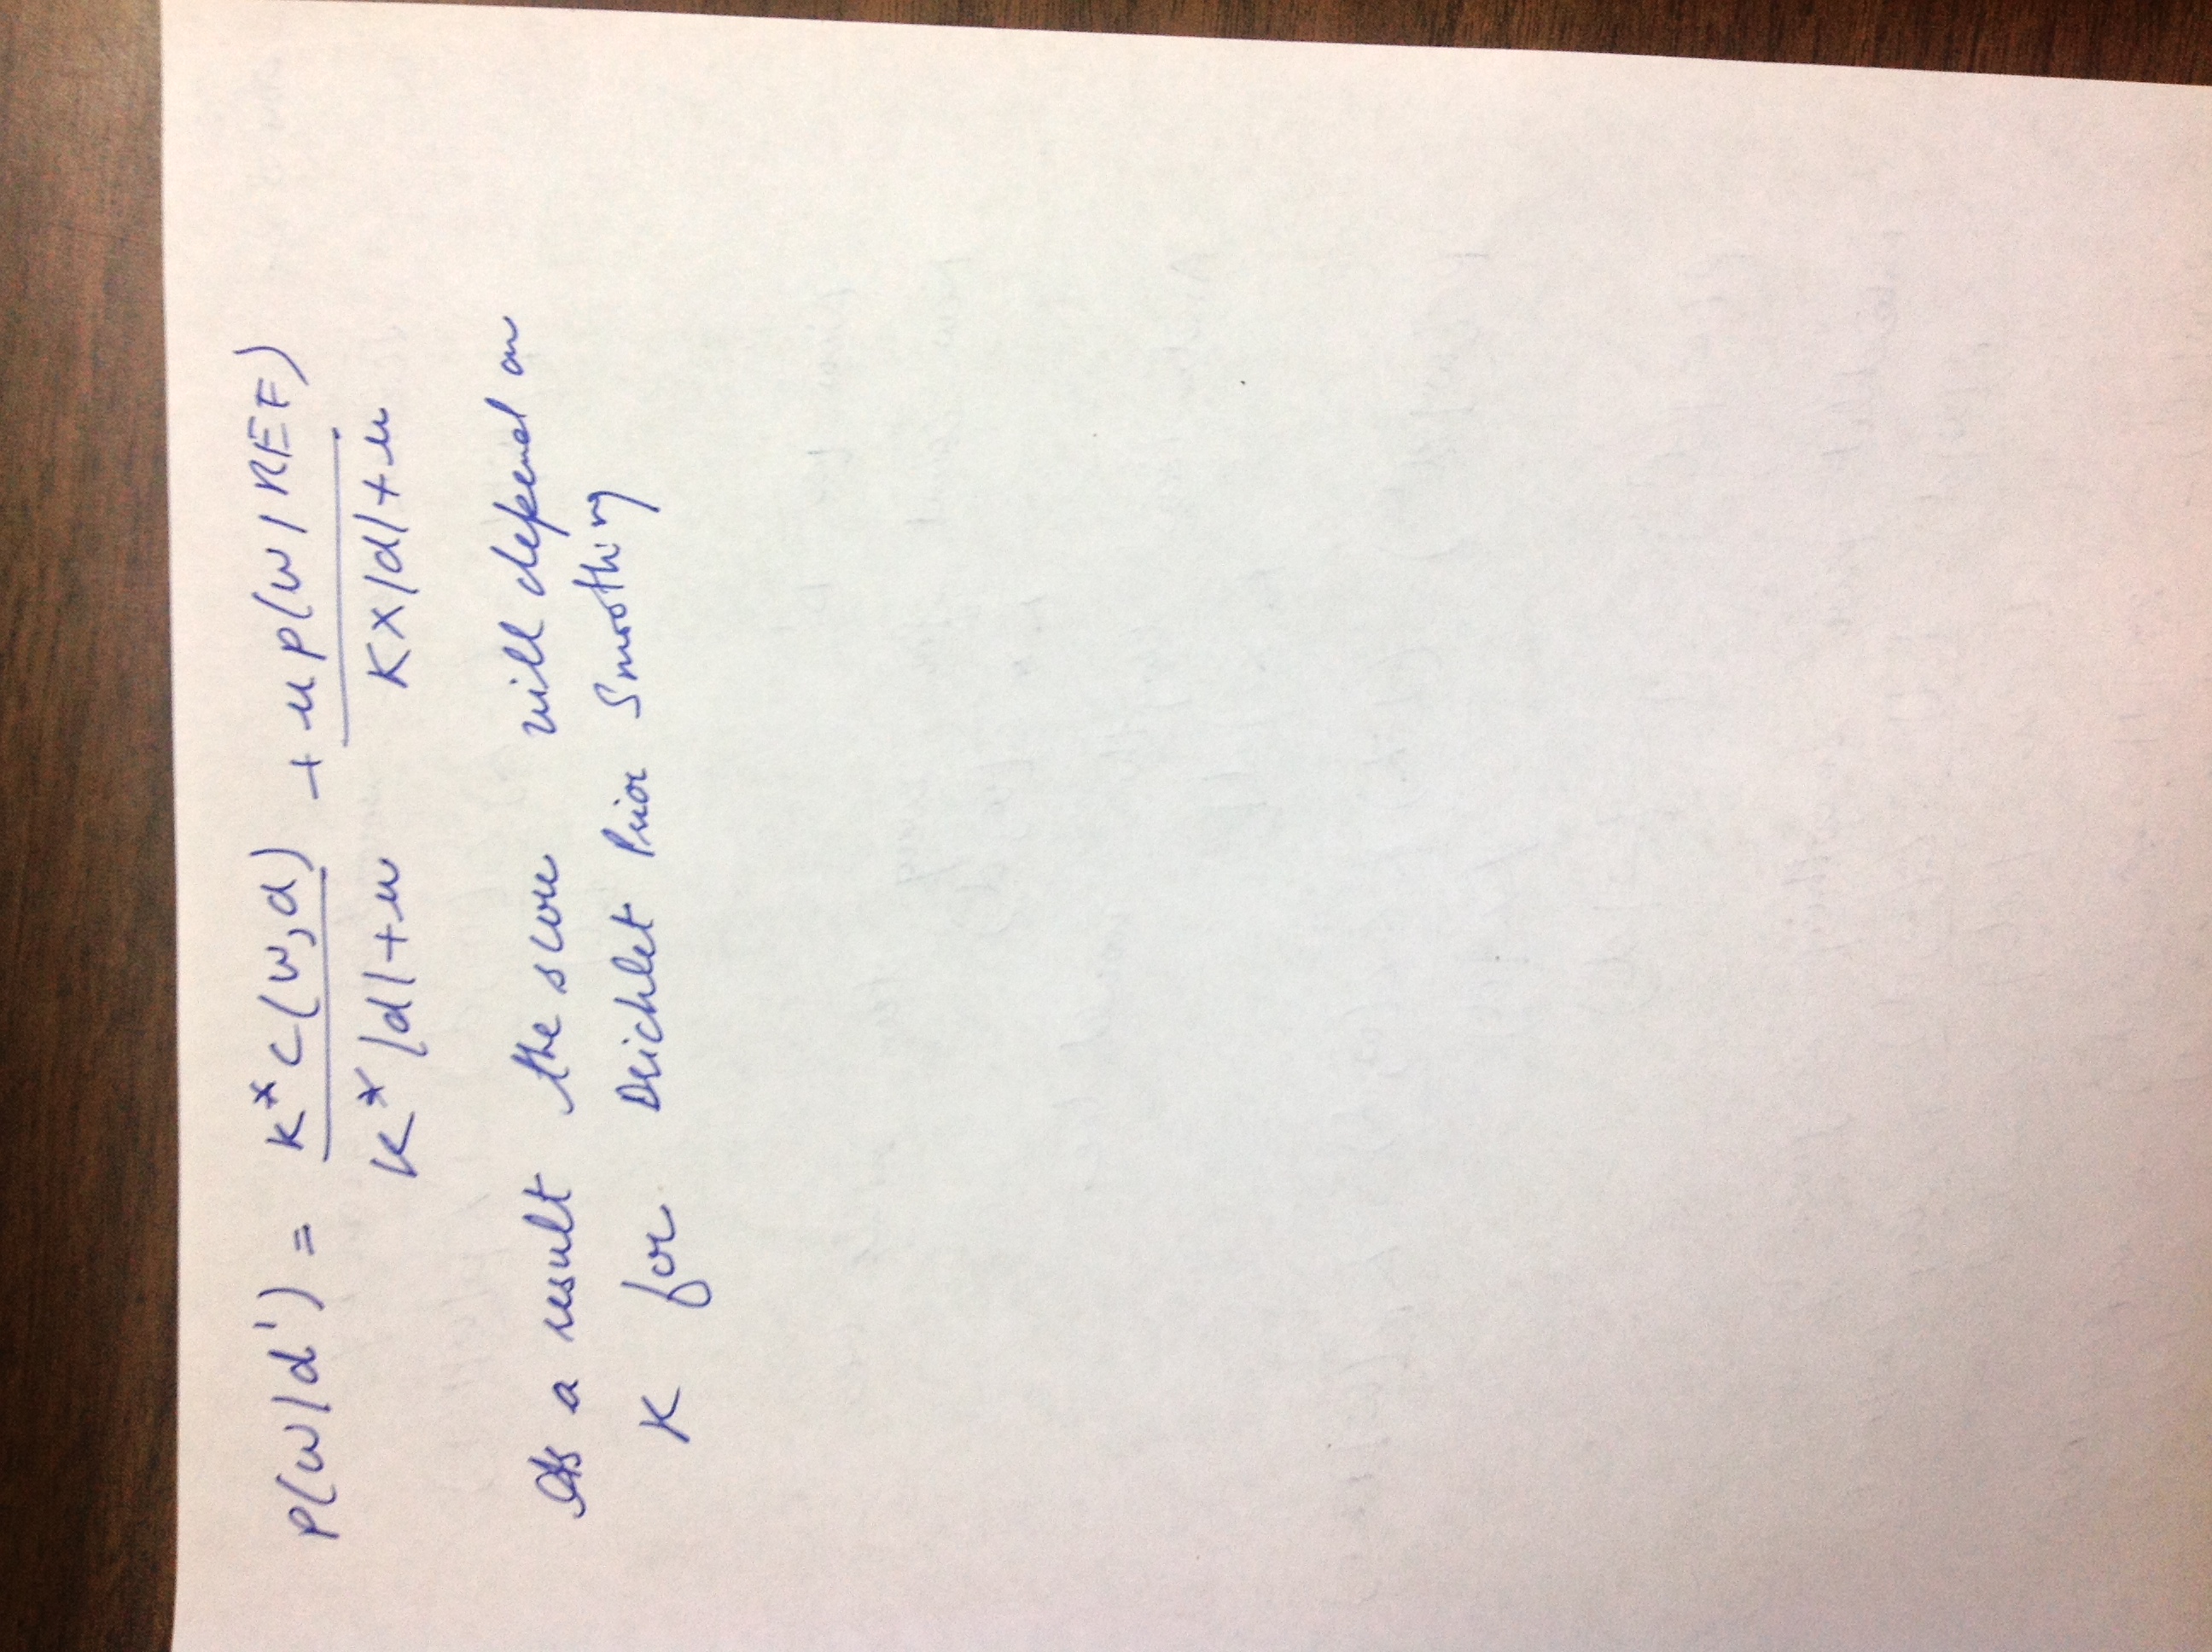 P(w/d') = K*c(w,d) / K*|d|+u + u p(w/REF) / Kx|d|+u
As a result the score will depend on
K for Drichlet Prior Smoothing